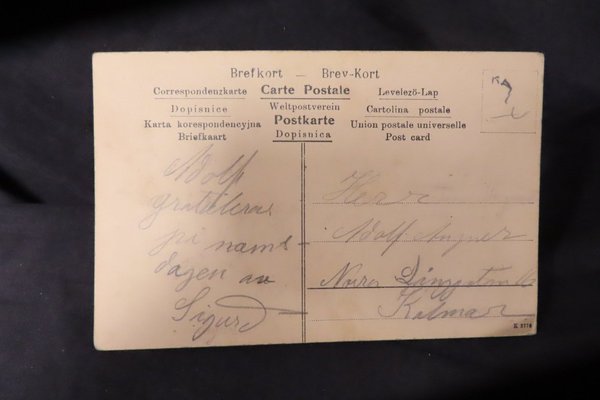 Brefkort — Brev-Kort
Correspondenzkarte Carte Postale Levelező-Lap
Dopisnice Weltpostverein Cartolina postale
Karta korespondencyjna Postkarte Union postale universelle
Briefkaart Dopisnica Post card
Adolf
gratuleras
på namns-
dagen av
Sigurd
Herr
Adolf
Norra
Kalmar
K 2178